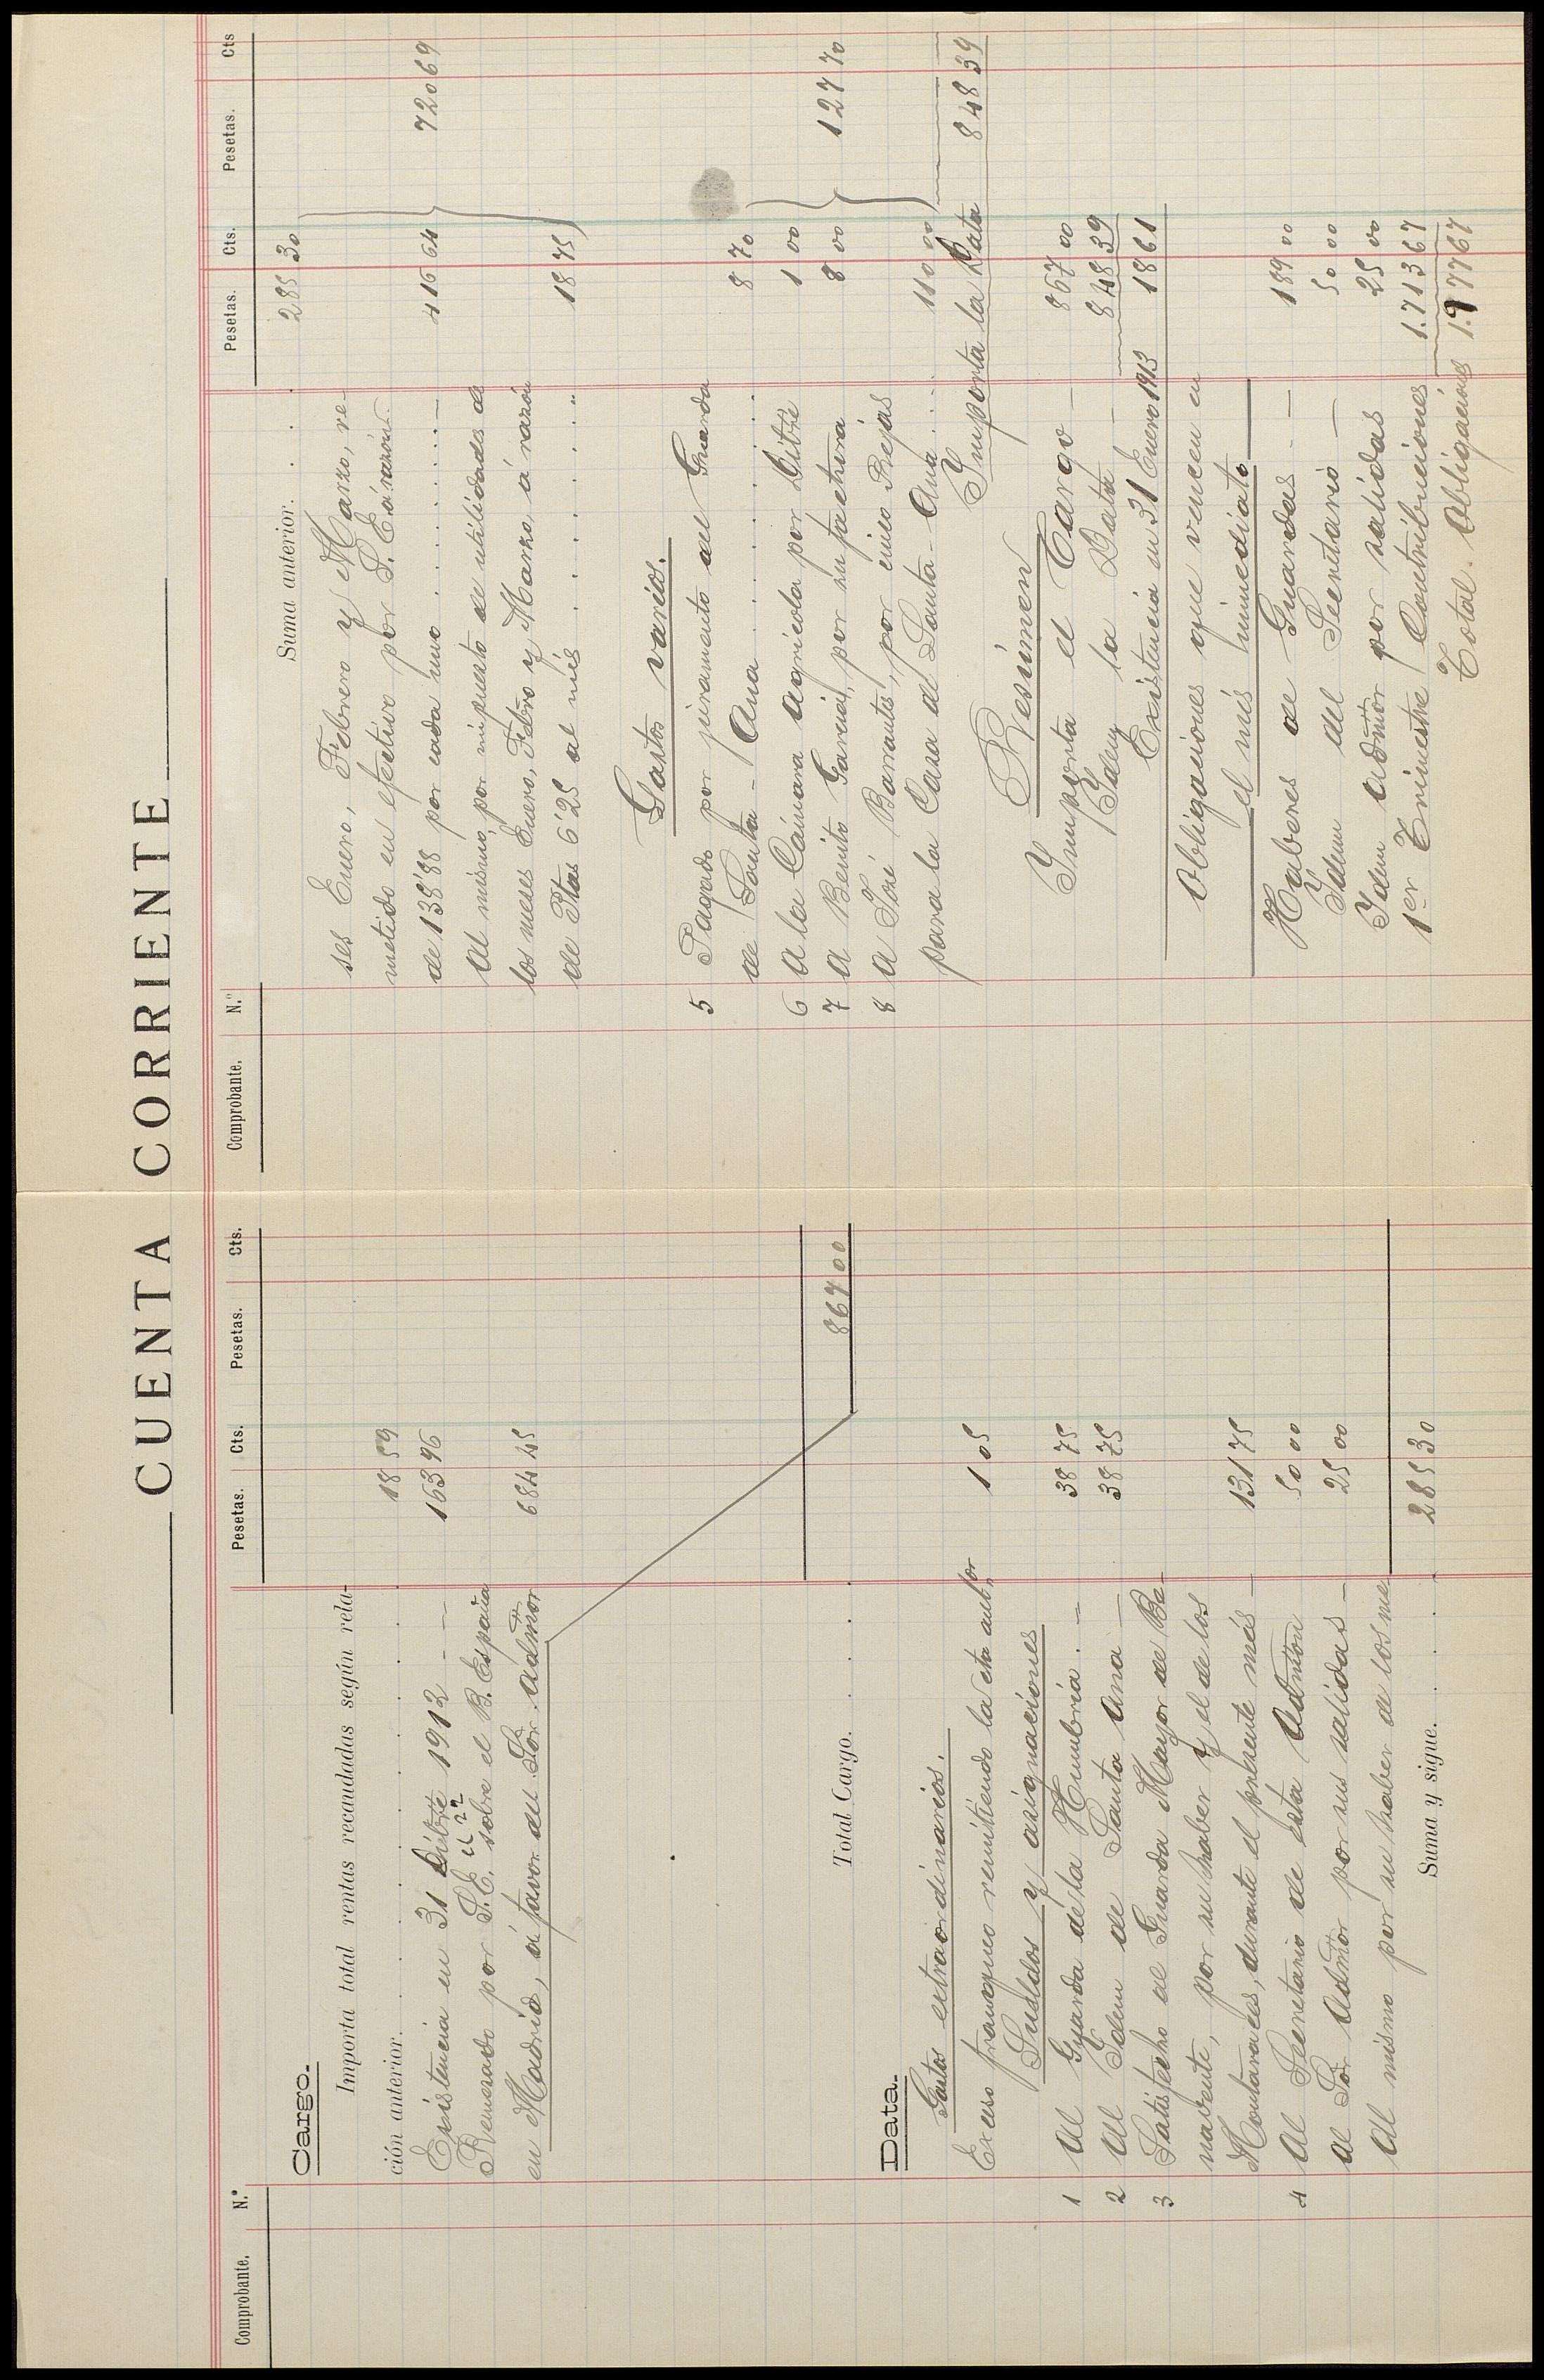 CUENTA CORRIENTE
Comprobante. N.º Pesetas. Cts. Pesetas. Cts.
Cargo.
Importa total rentas recaudadas según rela-
ción anterior. . . . . . . . . 18 59
Existencia en 31 Dibre 1912 - - 163 96
Remesado por S.E. el 22 sobre el B. España
en Madrid, á favor del Sor. Admor 684 45
Total Cargo. . . . . 867 00
Data.
Gastos extraordinarios.
Exceso franqueo remitiendo la cta antor 1 05
Sueldos y asignaciones
1 Al Guarda de la Humbria. - 38 75
2 Al Idem de Santa Ana - 38 75
3 Satisfecho al Guarda Mayor de Be-
navente, por su haber y el de los
Montaraces, durante el presente més - 131 75
4 Al Secretario de esta Admon 50 00
Al Sor Admor por sus salidas - 25 00
Al mismo por su haber de los me-
Suma y sigue. . . . . 285 30
Comprobante. N.º Pesetas. Cts. Pesetas. Cts
Suma anterior. . . . 285 30
ses Enero, Febrero y Marzo, re-
metido en efectivo por S. E á razón
de 138'88 por cada uno . . . . . - 416 64 720 69
Al mismo, por impuesto de utilidades de
los meses Enero, Febro y Marzo, á razón
de Ptas 6'25 al més . . . . . 18 75
Gastos varios.
5 Pagado por juramento del Guarda
de Santa - Ana . . . . . . 8 70
6 A la Cámara Agrícola por Dibre 1 00
7 A Benito Garcia, por su factura 8 00 127 70
8 A José Barrantes, por cinco Rejas
para la Casa de Santa - Ana . . . 110 00
Importa la Data 848 39
Resúmen
Importa el Cargo - 867 00
Idem la Data - 848 39
Existencia en 31 Enero 1913 18 61
Obligaciones que vencen en
el més inmediato
Haberes de Guardas - - 189 00
Idem del Secretario - 50 00
Idem Admor por salidas 25 00
1er Trimestre Contribuciones 1.713 67
Total. Obligaciones 1.977 67